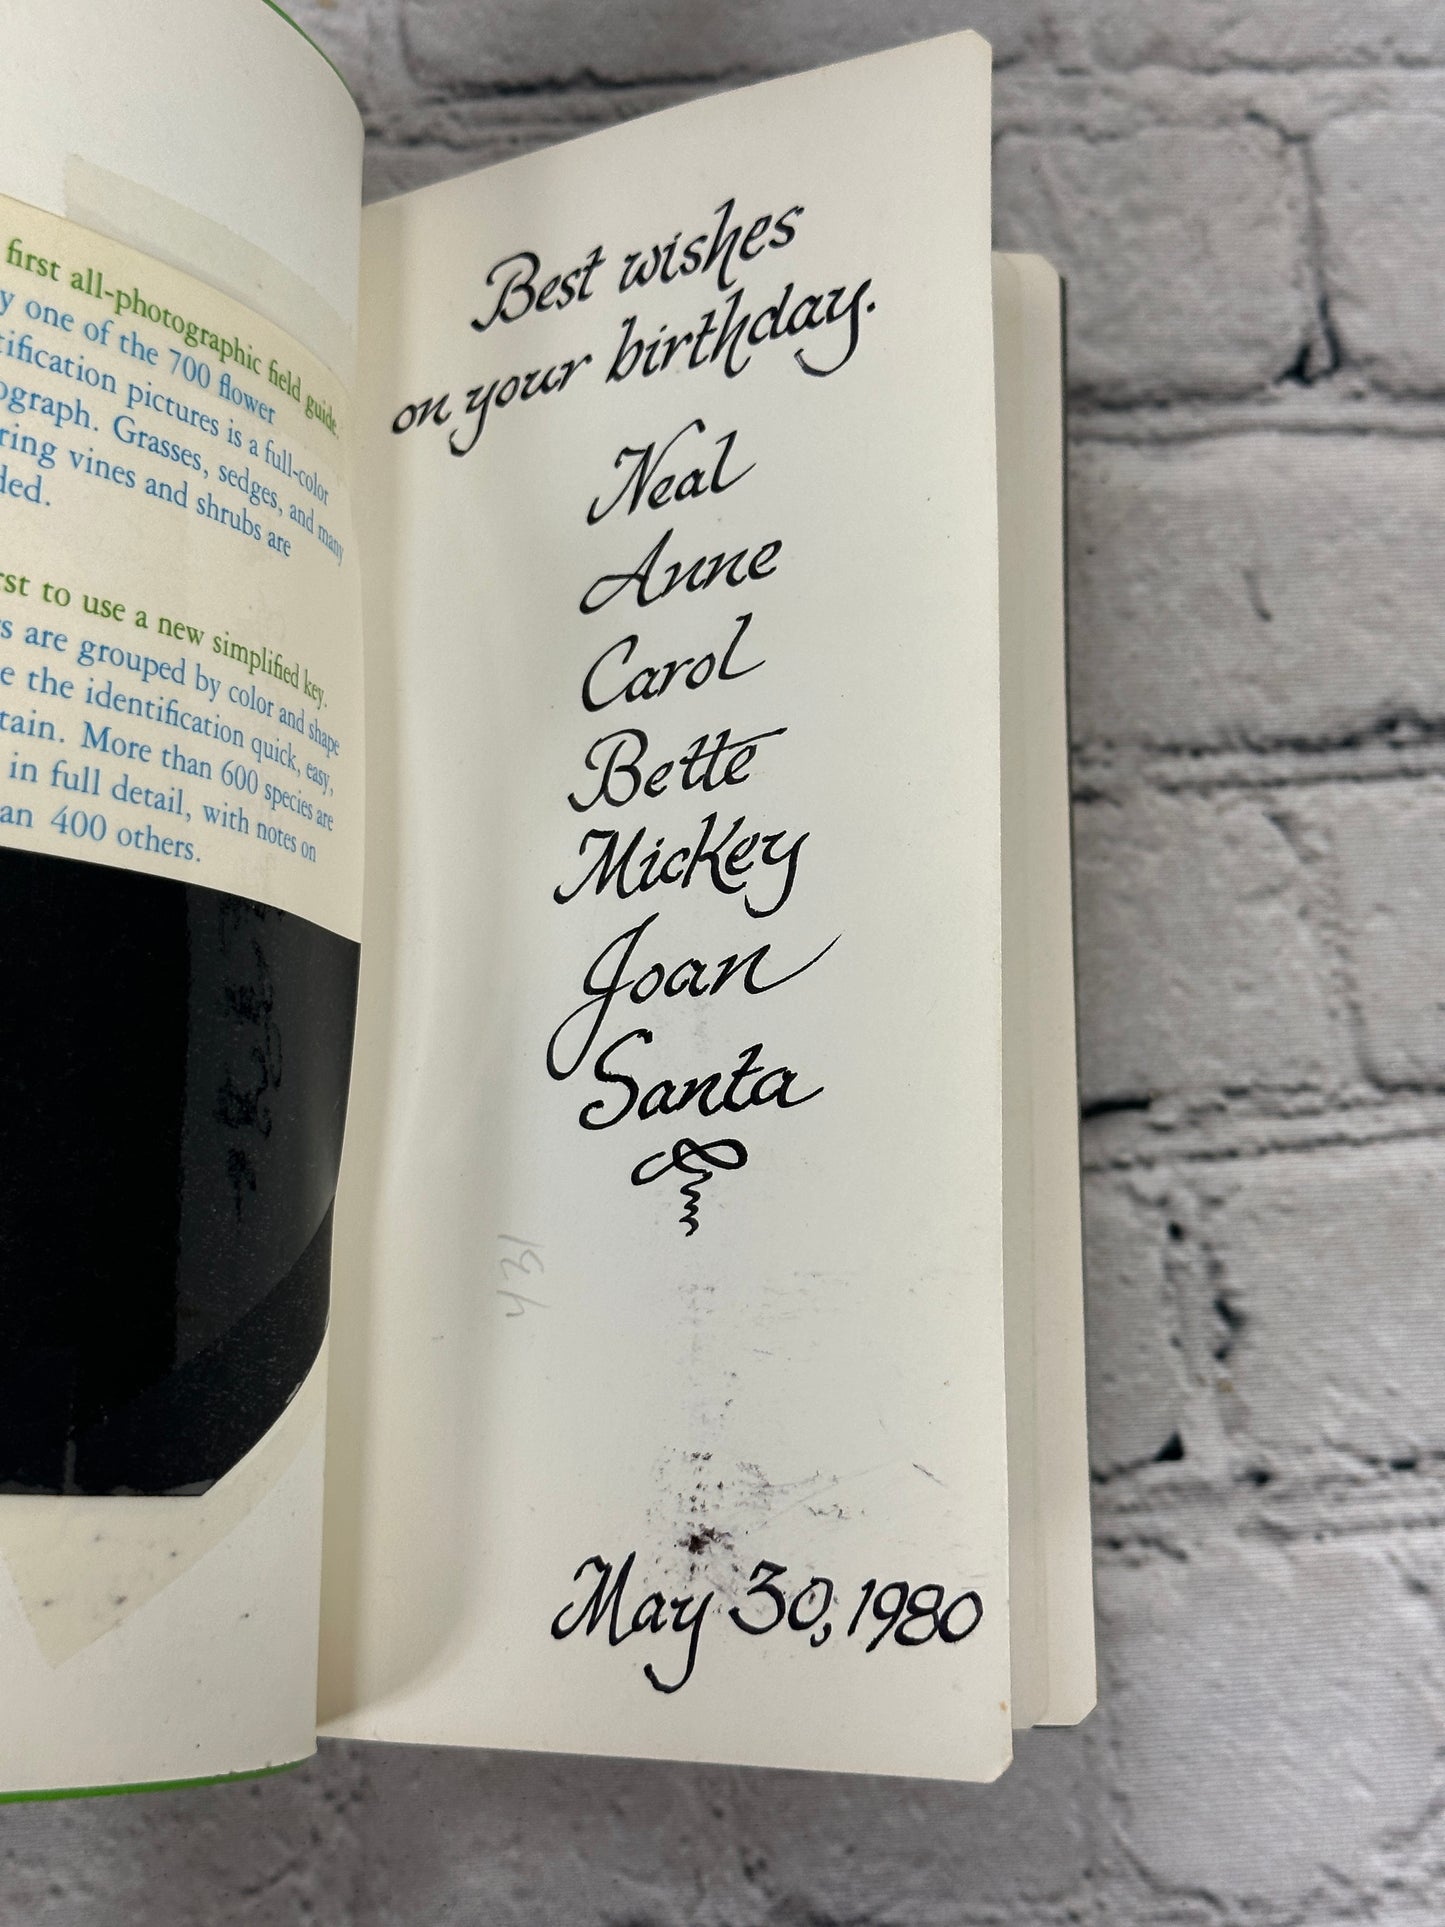 first all-photographic field guide.
y one of the 700 flower
tification pictures is a full-color
ograph. Grasses, sedges, and many
ring vines and shrubs are
ded.
rst to use a new simplified key.
s are grouped by color and shape
e the identification quick, easy,
tain. More than 600 species are
in full detail, with notes on
an 400 others.
Best wishes
on your birthday.
Neal
Anne
Carol
Bette
Mickey
Joan
Santa
May 30, 1980